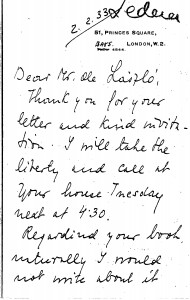 2.2.33 Lederer
51, PRINCES SQUARE,
LONDON, W.2.
Dear Mr. de László,
Thank you for your
letter and kind invita-
tion. I will take the
liberty and call at
your house Tuesday
next at 4:30.
Regarding your book
naturally I would
not write about it